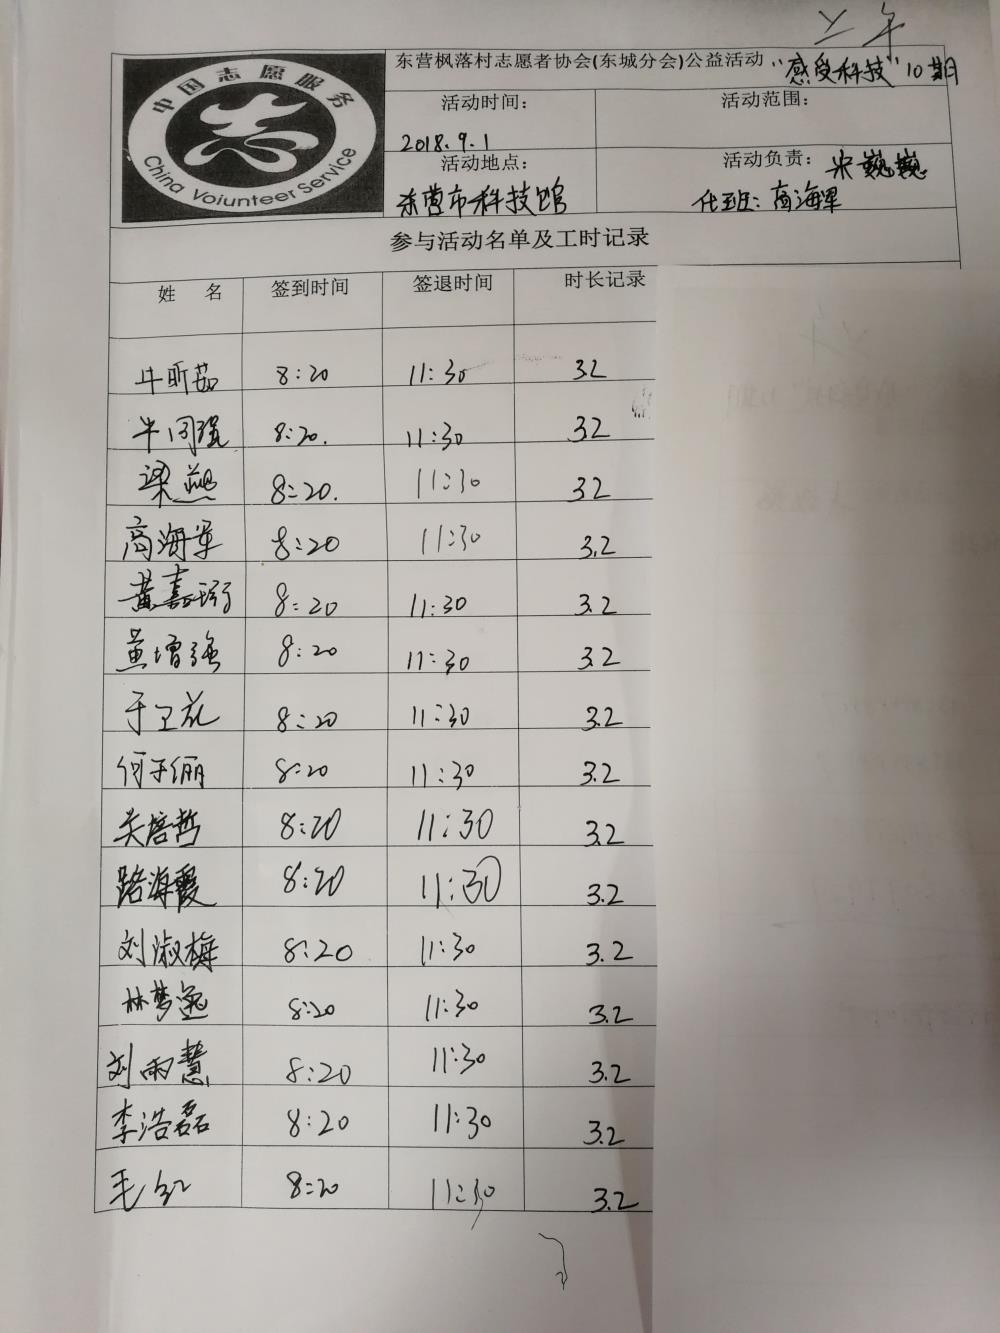 上午
中国志愿服务
China Voiunteer Service
东营枫落村志愿者协会(东城分会)公益活动 “感受科技”10期
活动时间: 活动范围:
2018.9.1
活动地点: 活动负责: 宋巍巍
东营市科技馆 代班: 高海军
参与活动名单及工时记录
姓 名 签到时间 签退时间 时长记录
牛昕茹 8:20 11:30 3.2
牛同强 8:20. 11:30 3.2
梁燕 8:20. 11:30 3.2
高海军 8:20 11:30 3.2
黄嘉 8:20 11:30 3.2
黄增强 8:20 11:30 3.2
于卫花 8:20 11:30 3.2
何子俪 8:20 11:30 3.2
关培哲 8:20 11:30 3.2
路海霞 8:20 11:30 3.2
刘淑梅 8:20 11:30 3.2
林梦逸 8:20 11:30 3.2
刘雨慧 8:20 11:30 3.2
李浩磊 8:20 11:30 3.2
毛红 8:20 11:30 3.2